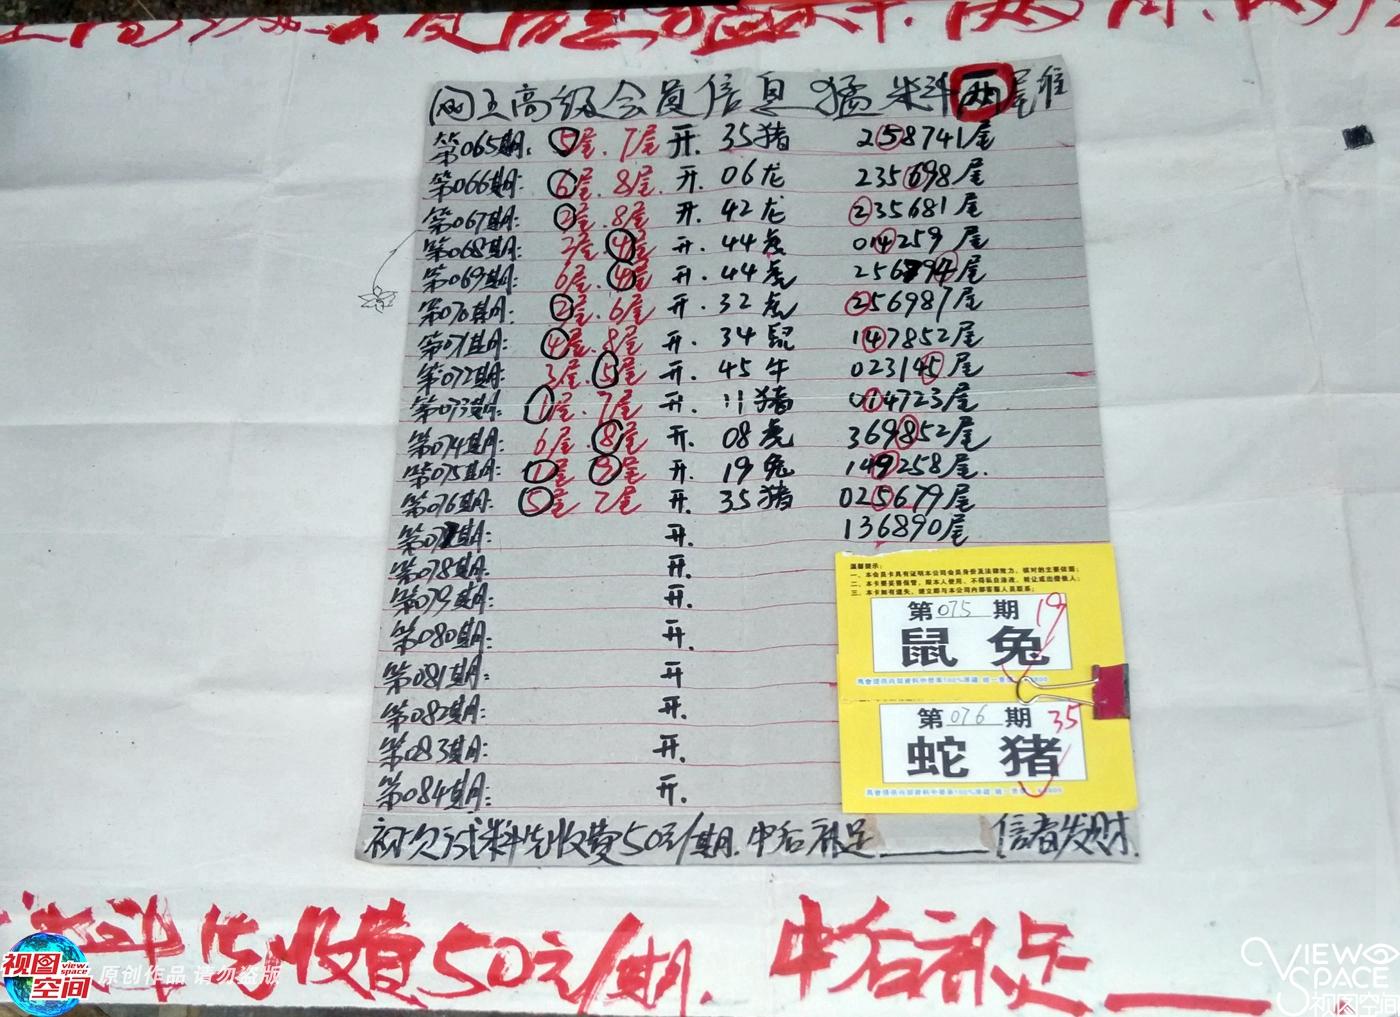 网上高级会员信息猛料两尾准
第065期: 5尾.7尾 开.35猪 258741尾
第066期: 6尾.8尾.开.06龙 235698尾
第067期: 2尾.8尾 开.42龙 235681尾
第068期: 2尾.4尾 开.44虎 014259尾
第069期: 6尾.4尾 开.44虎 256794尾
第070期: 2尾.6尾 开.32虎 256987尾
第071期: 4尾.8尾 开.34鼠 147852尾
第072期: 3尾.5尾 开.45牛 023145尾
第073期: 1尾.7尾 开.11猪 014723尾
第074期: 6尾.8尾 开.08虎 369852尾
第075期: 1尾 9尾 开.19兔 149258尾.
第076期: 5尾 7尾 开.35猪 025679尾
第077期: 开. 136890尾
第078期: 开.
第079期: 开.
第080期: 开.
第081期: 开
第082期: 开.
第083期: 开.
第084期: 开.
初次试料先收费50元/期.中后补足 信者发财.
温馨提示:
一、本会员卡具有证明本公司会员身份及法律效力，核对的主要依据;
二、本卡要妥善保管，限本人使用，不得私自涂改，转让或出借他人;
三、本卡如有遗失，请立即与本公司内部客服人员联系;
第075期 19
鼠 兔
第076期 35
蛇 猪
料先收费50元/期.中后补足
视图空间
view space
原创作品 请勿盗版
VIEW SPACE
视图空间